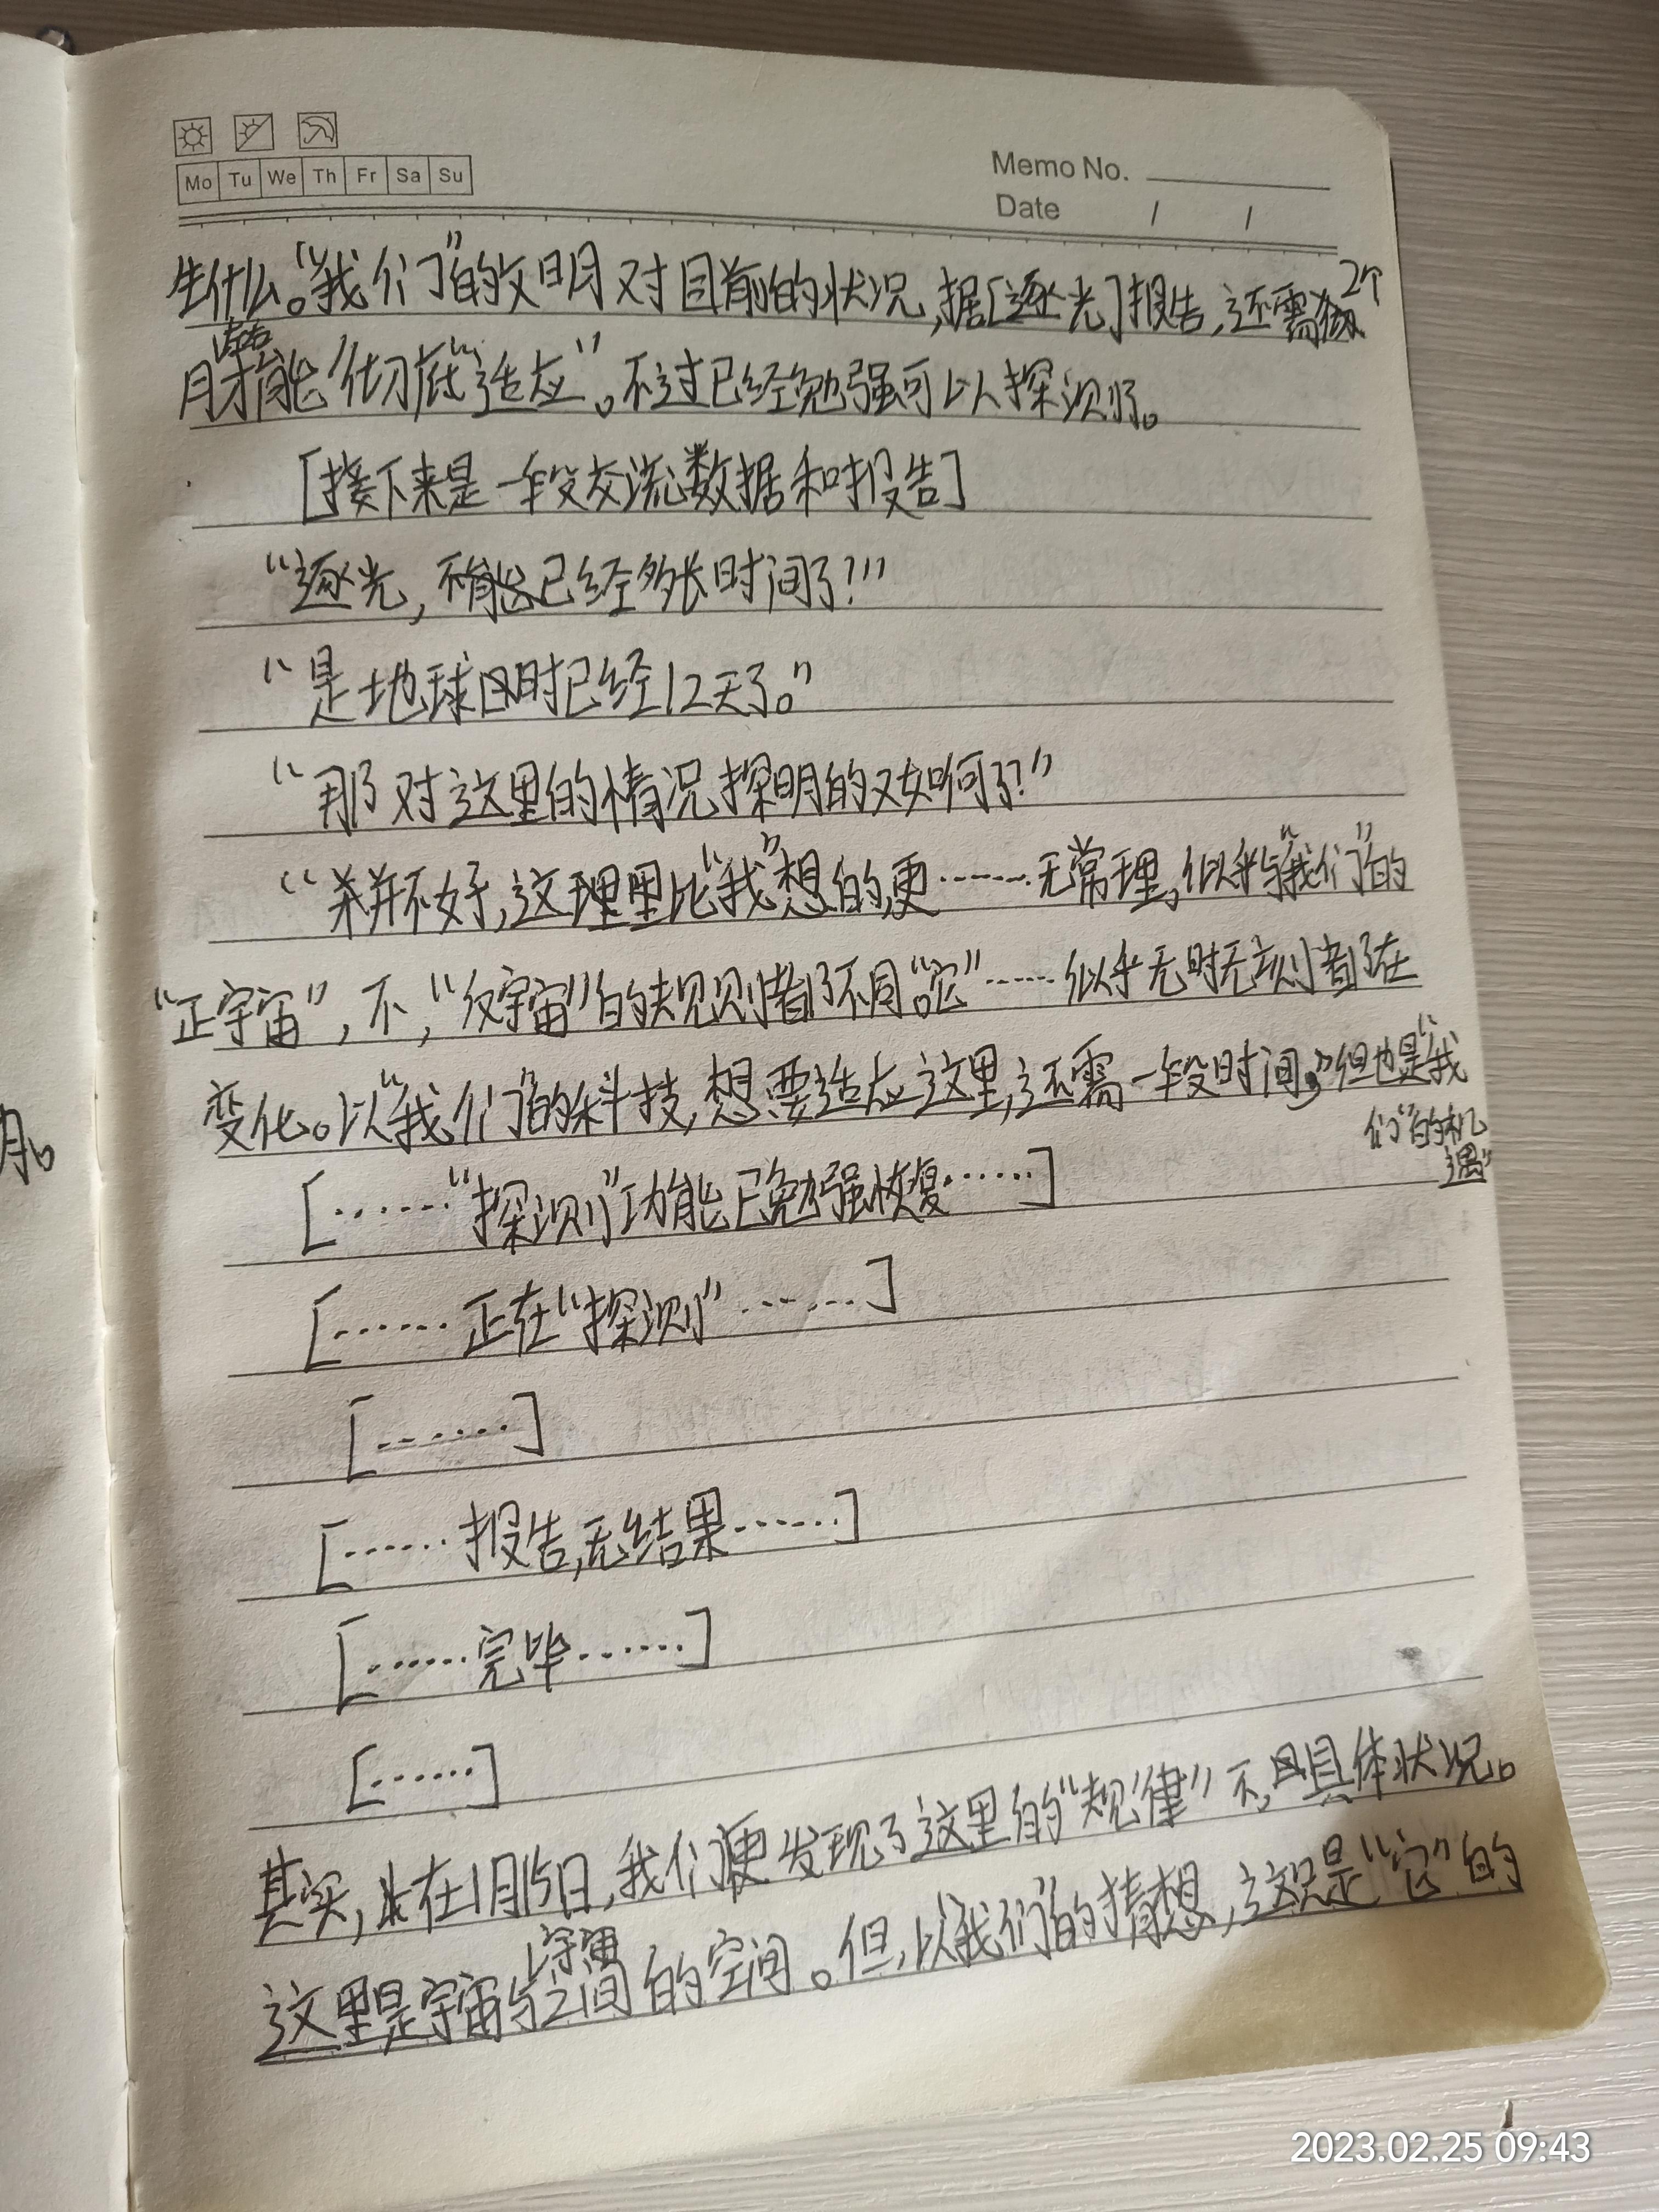 Mo Tu We Th Fr Sa Su
Memo No.
Date / /
生什么。“我们”的文明对目前的状况,据[逐光]报告,还需2个
月才能“彻底”适应”。不过已经勉强可以探测了。
[接下来是一段交流数据和报告]
“逐光,已经多长时间了?”
“是地球时已经12天了。”
“那对这里的情况探明的如何了?”
“并不好,这里比“我”想的,更……无常理,似乎与“我们”的
“正宇宙”,不,“反宇宙”的规则都不同。“它”……似乎无时无刻都在
变化。以“我们”的科技,想要适应这里,还需一段时间,但也是“我
们”的机
遇”
[……“探测”功能已勉强恢复……]
[……正在“探测”……]
[……]
[……报告,无结果……]
[……完毕……]
[……]
其实,在1月15日,我们便发现了这里的“规律”不,具体状况。
这里是宇宙与宇宙之间的空间。但,以“我们”的猜想,这只是“它”的
月。
2023.02.25 09:43